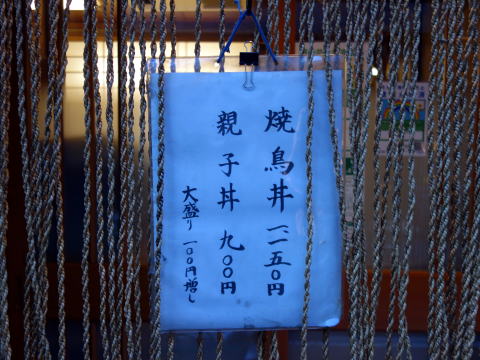 焼鳥丼 一一五〇円
親子丼 九〇〇円
大盛り 一〇〇円増し